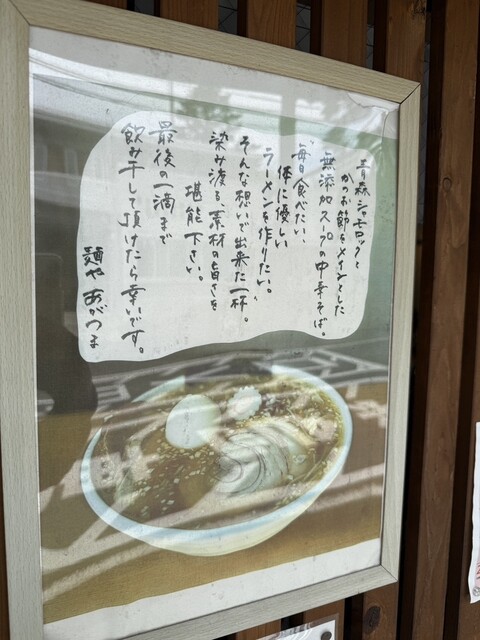 青森シャモロックと
かつお節をメインとした
無添加スープの中華そば。
"毎日食べたい、
体に優しい
ラーメンを作りたい。"
そんな想いで出来た一杯。
染み渡る、素材の旨さを
堪能下さい。
最後の一滴まで
飲み干して頂けたら幸いです。
麺や あがつま